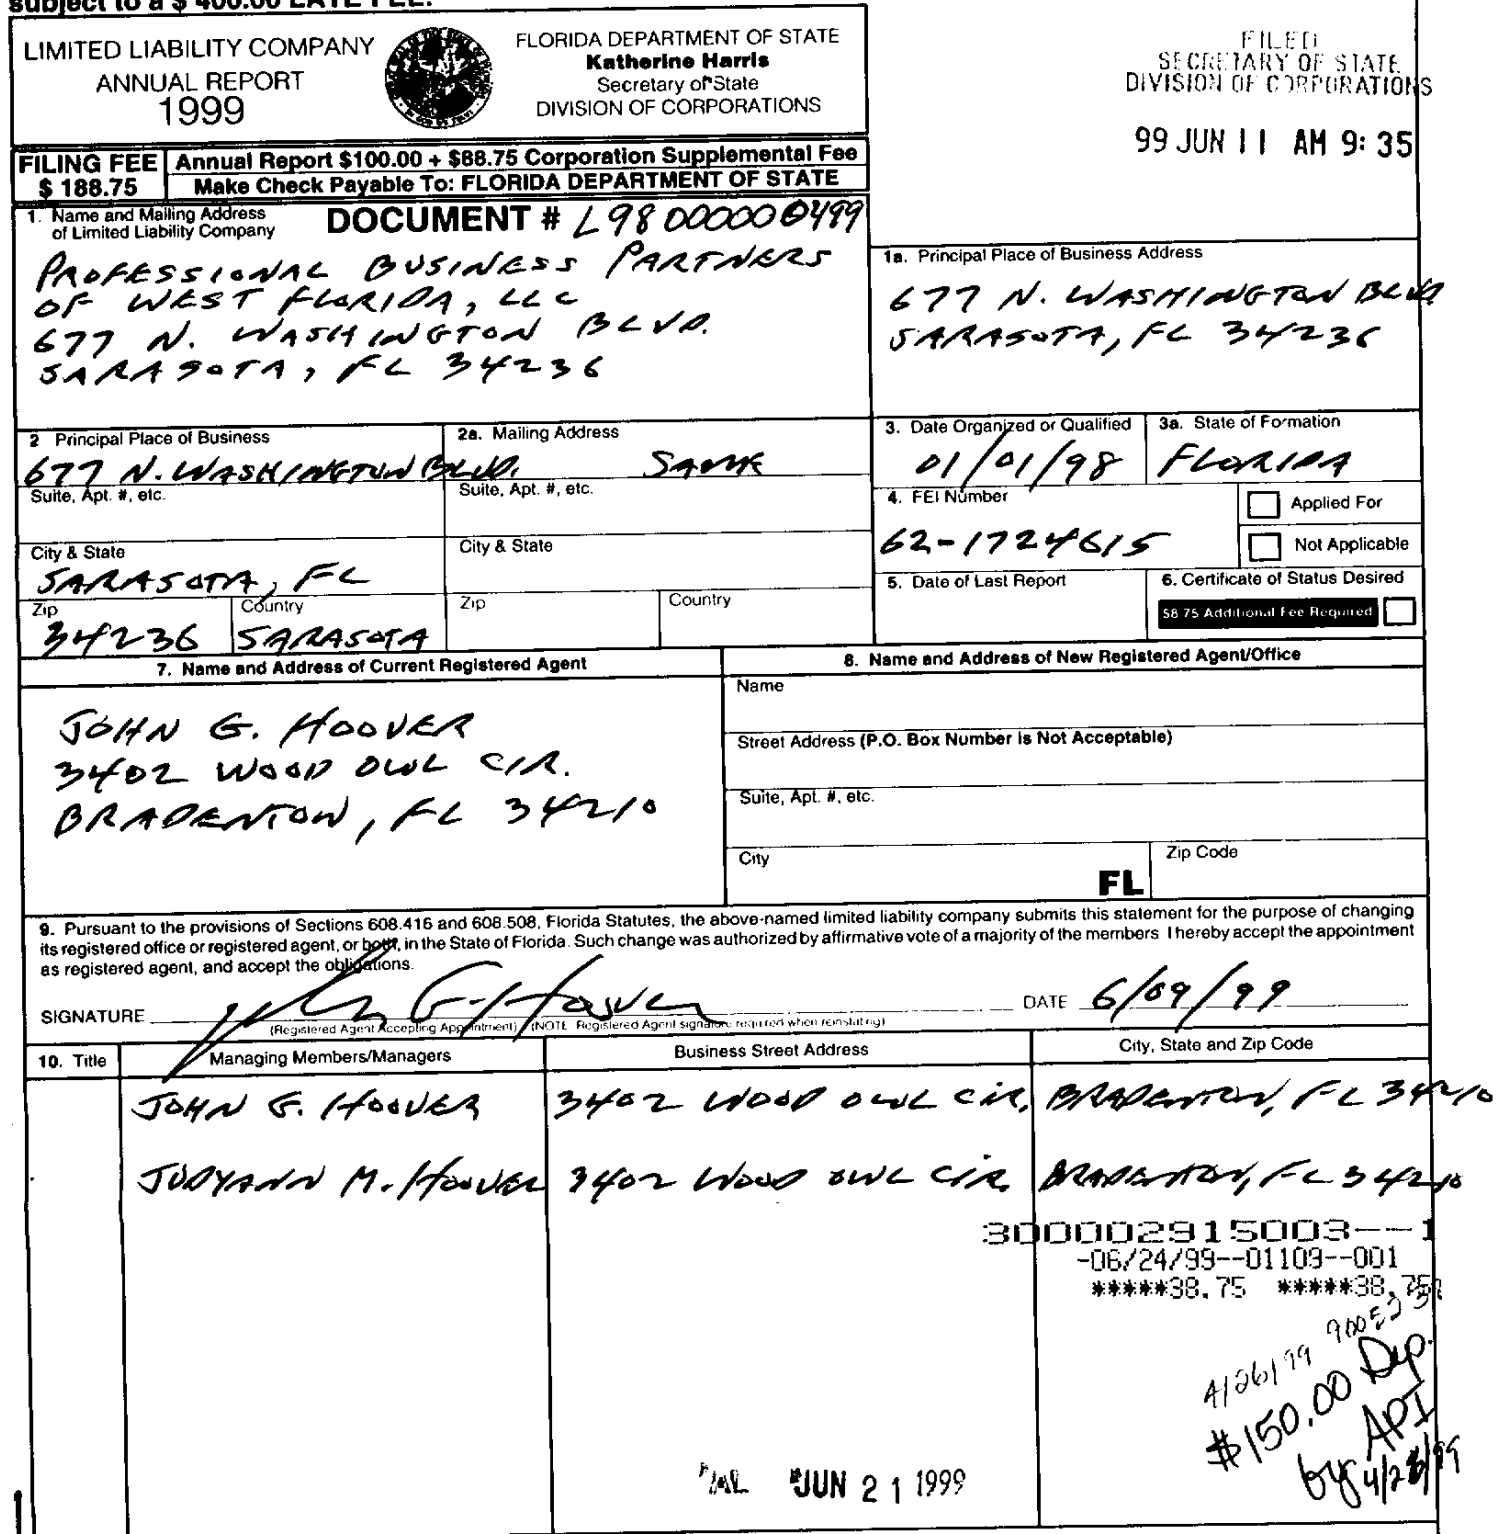 subject to a $ 400.00 LATE FEE.
LIMITED LIABILITY COMPANY
ANNUAL REPORT
1999
FLORIDA DEPARTMENT OF STATE
Katherine Harris
Secretary of State
DIVISION OF CORPORATIONS
FILED
SECRETARY OF STATE
DIVISION OF CORPORATIONS
99 JUN 11 AM 9:35
FILING FEE
$ 188.75
Annual Report $100.00 + $88.75 Corporation Supplemental Fee
Make Check Payable To: FLORIDA DEPARTMENT OF STATE
1. Name and Mailing Address
of Limited Liability Company
DOCUMENT # L98000000499
PROFESSIONAL BUSINESS PARTNERS
OF WEST FLORIDA, LLC
677 N. WASHINGTON BLVD.
SARASOTA, FL 34236
1a. Principal Place of Business Address
677 N. WASHINGTON BLVD.
SARASOTA, FL 34236
2 Principal Place of Business
677 N. WASHINGTON BLVD.
2a. Mailing Address
SAME
3. Date Organized or Qualified
01/01/98
3a. State of Formation
FLORIDA
Suite, Apt. #, etc.
Suite, Apt. #, etc.
4. FEI Number
62-1724615
Applied For
Not Applicable
City & State
SARASOTA, FL
City & State
5. Date of Last Report
6. Certificate of Status Desired
$8.75 Additional Fee Required
Zip
34236
Country
SARASOTA
Zip
Country
7. Name and Address of Current Registered Agent
JOHN G. HOOVER
3402 WOOD OWL CIR.
BRADENTON, FL 34210
8. Name and Address of New Registered Agent/Office
Name
Street Address (P.O. Box Number is Not Acceptable)
Suite, Apt. #, etc.
City
FL
Zip Code
9. Pursuant to the provisions of Sections 608.416 and 608.508, Florida Statutes, the above-named limited liability company submits this statement for the purpose of changing
its registered office or registered agent, or both, in the State of Florida. Such change was authorized by affirmative vote of a majority of the members I hereby accept the appointment
as registered agent, and accept the obligations.
SIGNATURE John G. Hoover DATE 6/09/99
(Registered Agent Accepting Appointment) (NOTE Registered Agent signature required when reinstating)
10. Title Managing Members/Managers Business Street Address City, State and Zip Code
JOHN G. HOOVER 3402 WOOD OWL CIR. BRADENTON, FL 34210
JUDYANN M. HOOVER 3402 WOOD OWL CIR. BRADENTON, FL 34210
3000002915003--1
-06/24/99--01109--001
*****38.75 *****38.75
4/26/99
$150.00 Dep.
by API
4/28/99
JUN 21 1999